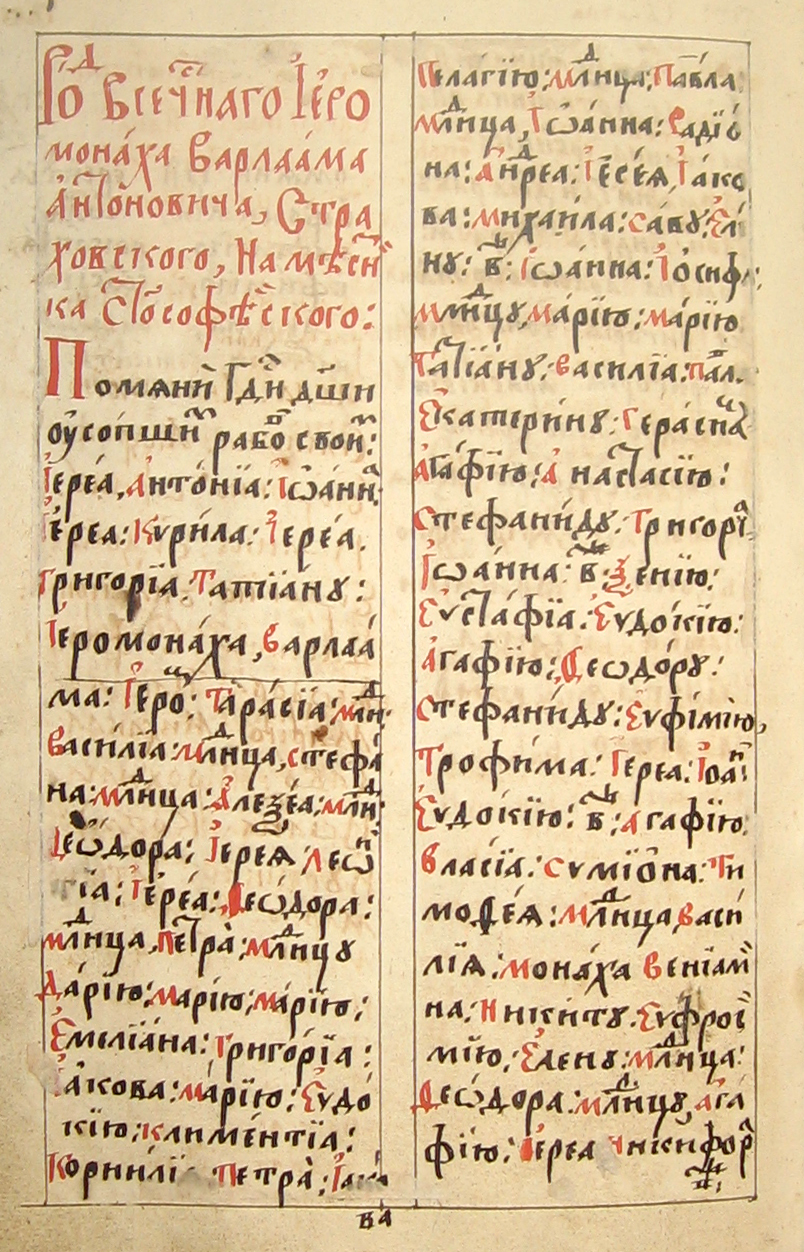 Ро́д Всече́наго Іеро
мона́ха Варлаа́ма
Анто́новича, Стра
ховского, Намѣсн
ка Стософѣ́ского:
Помяни́ Гдѝ дши
оусопши́х рабо́в свои́х:
Іере́а, Анто́нїа: Іѡа́нна:
Іере́а: Кири́ла: Іере́а.
Григорїа, Татїа́ну:
Іеромона́ха, Варлаа́
ма: Іеро: Тара́сїа: млн
Васи́лїа: млнца, Стефа́
на: млнца: Але́ѯеа: млн
Ѳеѡ́дора: Іерея Леѡ́н
тїа: Іере́а: Ѳеѡ́дора:
млнца, Петра̀: млнцу
Да́рїю: Марі́ю: Ма́рїю:
Емелїа́на: Григо́рїа:
Іа́кова: Ма́рїю: Еѵдо
кїю: Климе́нтїа:
Корни́лї Петра̀:
Пела́гїю: млнца: Па́вла
млнца, Іѡа́нна: Радїо́
на: Андре́а: Іесе́я, Іа́ко
ва: Михаи́ла: Са́ву: Елі́
ну: в҃: Іѡа́нна: Іо́сифа:
млнцу, Ма́рїю: Ма́рїю
Татїа́ну: Васи́лїа: Пав́л.
Екатери́ну: Гера́сима
Ага́фїю: Анаста́сїю:
Стефани́ду: Григо́рїа
Іѡа́нна: в҃: Ѯе́нїю:
Еѵста́фїа. Еѵдокі́ю:
Ага́фїю: Ѳеѡдо́ру:
Стефани́ду: Еѵфі́мїю,
Трофи́ма: Іере́а: Іоа́н:
Еѵдокі́ю: в҃: Ага́фїю:
Вла́сїа: Сѵмїо́на: Ти
моѳе́я: млнца, Васи́
лїя: мона́ха Венїами́
на: Ники́ту: Еѵфрої
мі́ю, Еле́ну: млнца:
Ѳеѡ́дора: млнцу, Ага́
фїю: Іере́а Никифо́р
ва